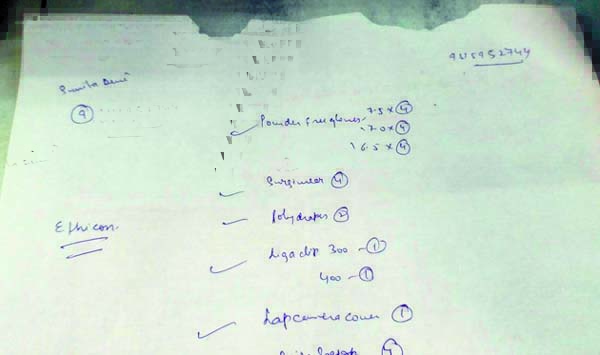 9815952744
Sunita Devi
9
Powder free gloves 7.5 x 4
7.0 x 4
6.5 x 4
Surgiwear 4
Polydrapes 2
Ethicon
Ligaclip 300 - 1
400 - 1
Lap camera cover 1
4